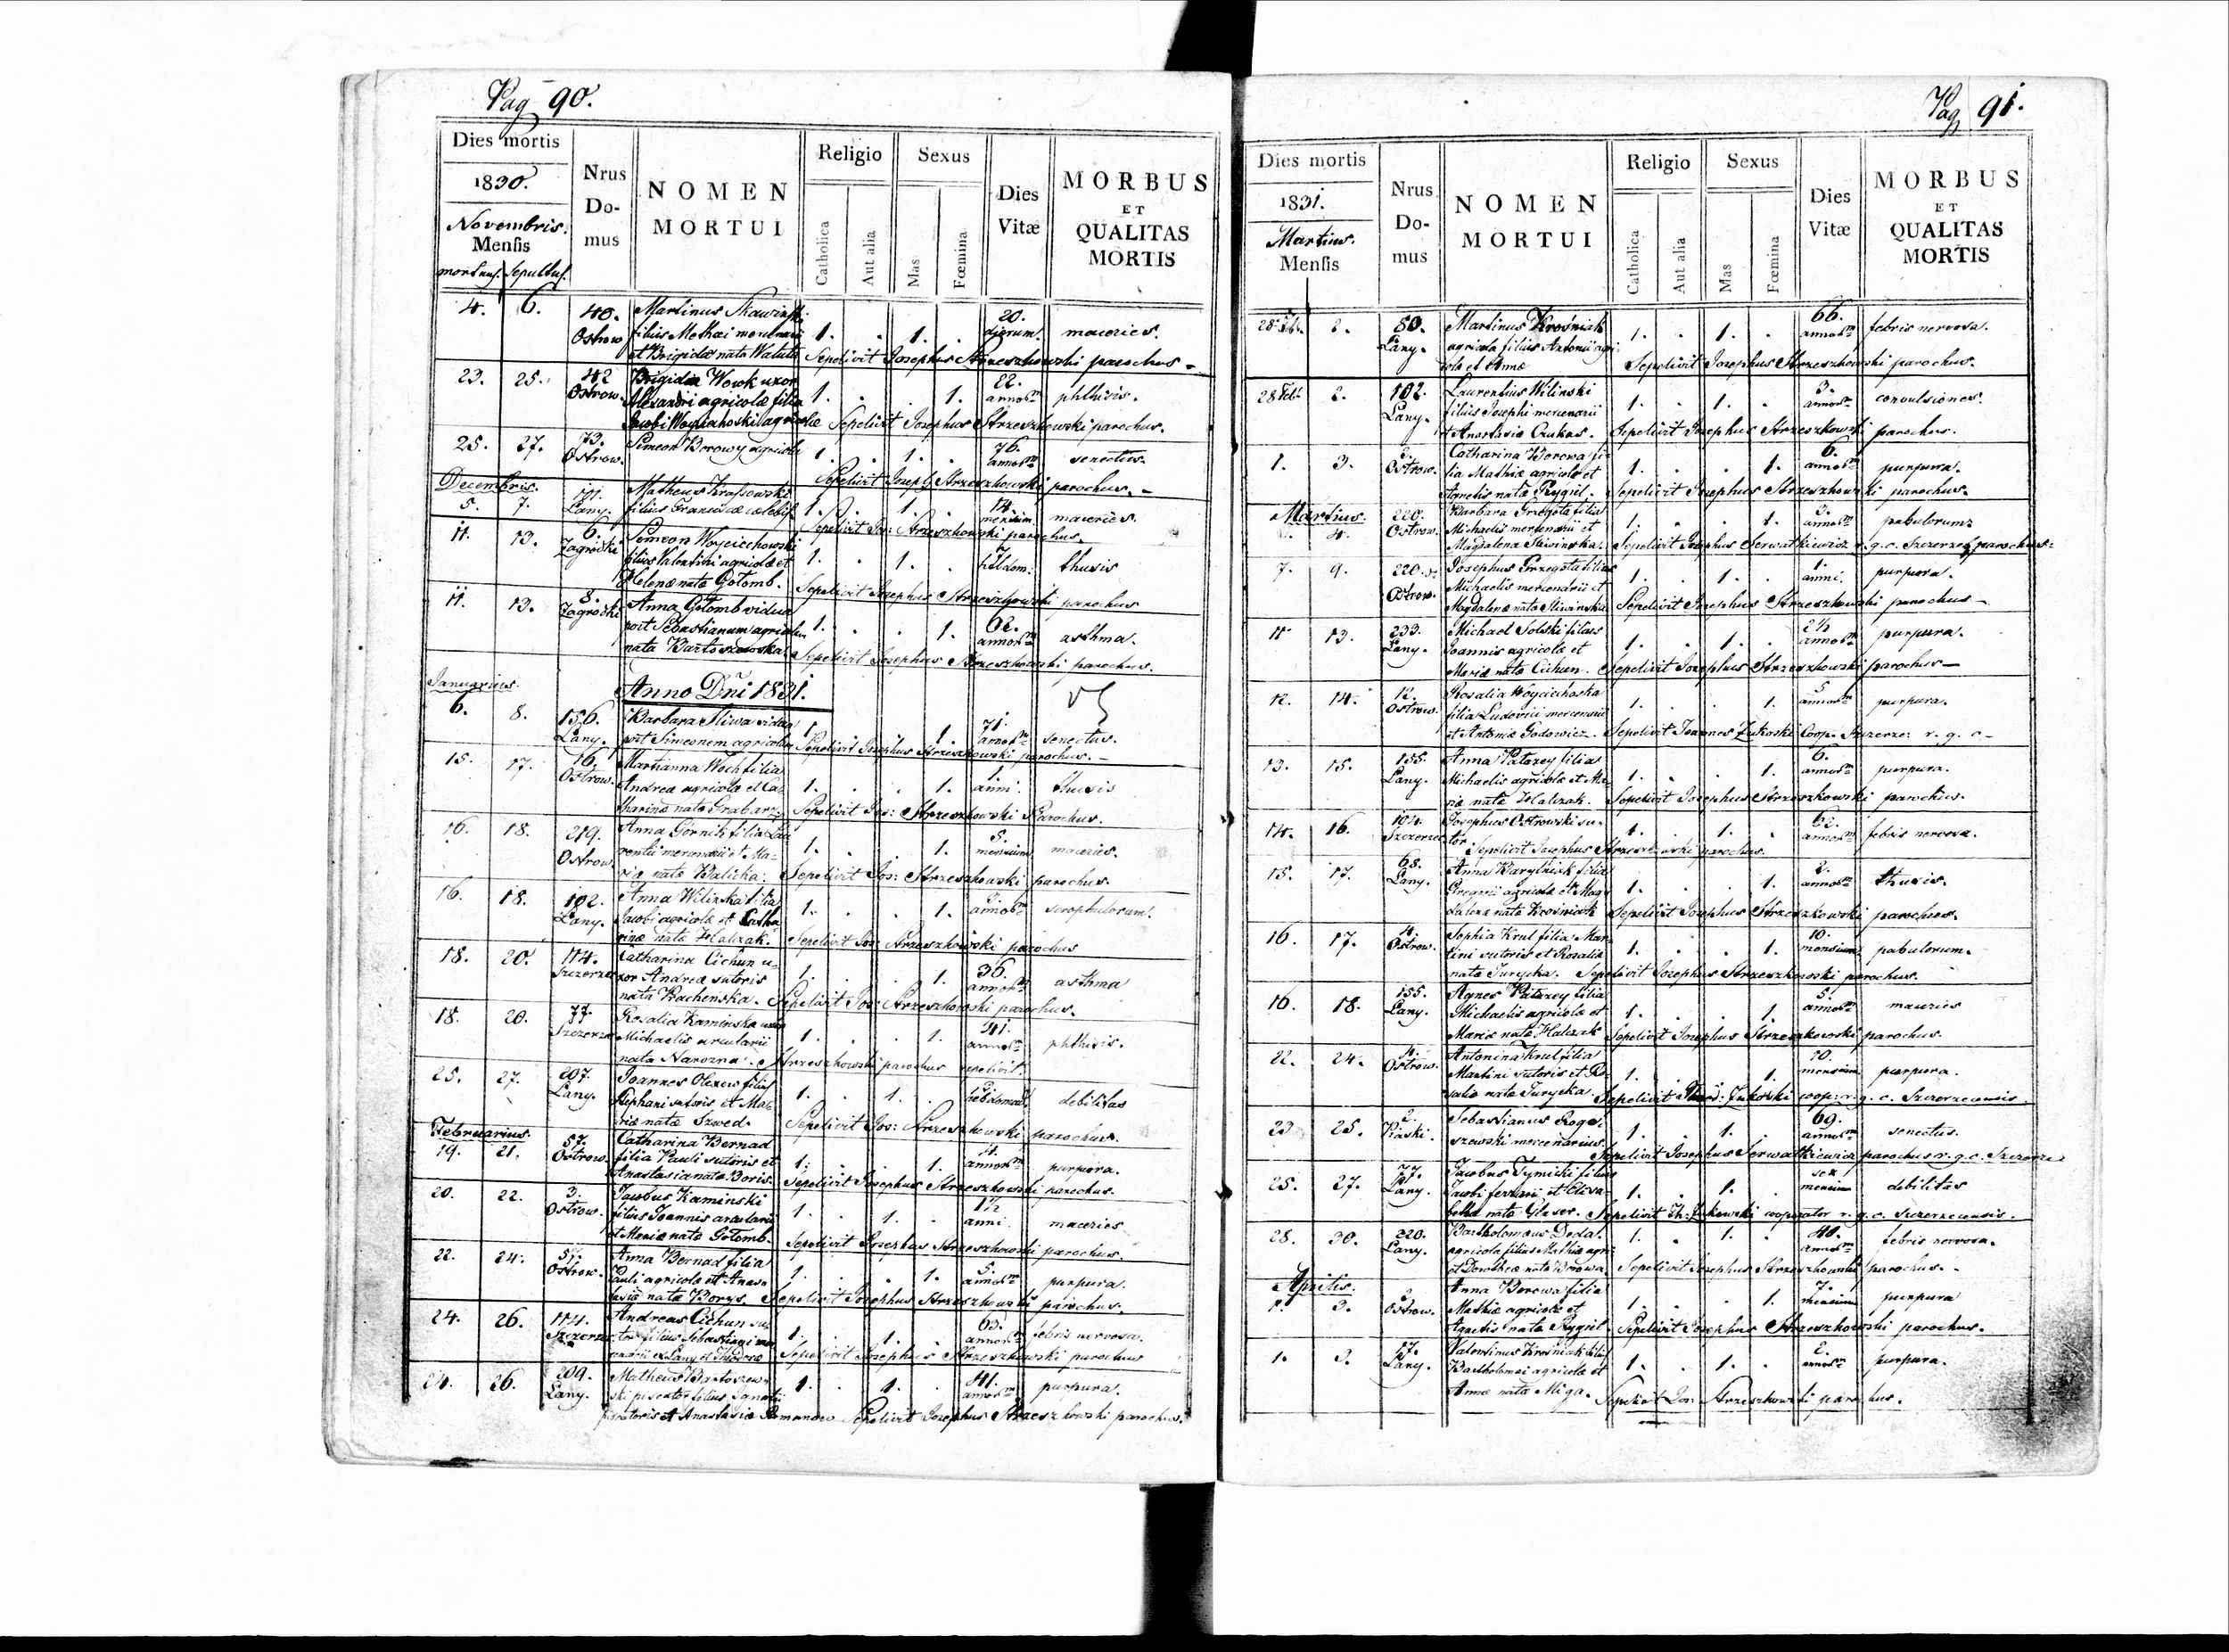 Pag 90.
Dies mortis
1830.
Novembris.
Mensis
mortuus. Sepultus.
Nrus Do-mus
NOMEN MORTUI
Religio
Catholica
Aut alia
Sexus
Mas
Fœmina
Dies Vitæ
MORBUS ET QUALITAS MORTIS
4. 6. 40. Ostrow Martinus Skawinski 1. . 1. . 20. dierum. macries.
filius Mathæi mercenarii
et Brigidæ nata Watuta Sepelivit Josephus Strzeszkowski parochus
23. 25. 42 Ostrow. Brigida Wowk uxor 1. . . 1. 22. annorum phthisis.
Alexandri agricolæ filia
Jacobi Woyciahoski agricolæ Sepelivit Josephus Strzeszkowski parochus.
25. 27. 73. Ostrow. Simeon Borowy agricola 1. . 1. . 76. annorum senectus.
Sepelivit Joseph Strzeszkowski parochus.
Decembris.
5. 7. 191. Lany. Matheus Krassowski 1. . 1. . 14. mensium. macries.
filius Franciscæ cælebis Sepelivit Jos: Strzeszkowski parochus.
11. 13. 6. Zagrodki Simeon Woyciechowski 1. . 1. . 7 hebdom. thusis
filius Valentini agricolæ et
Helenæ nata Gotomb. Sepelivit Josephus Strzeszkowski parochus
11. 13. 8. Zagrodki Anna Gotomb vidua 1. . . 1. 62. annorum asthma.
post Sebastianum agricolam
nata Bartoszewska. Sepelivit Josephus Strzeszkowski parochus.
Januarius. Anno Dni 1831.
6. 8. 156. Lany. Barbara Sliwa vidua 1. . . 1. 71. annorum senectus.
post Simeonem agricolam Sepelivit Josephus Strzeszkowski parochus.
15. 17. 16. Ostrow. Marianna Woch filia 1. . . 1. 1. anni. thusis
Andreæ agricolæ et Ca-
tharinæ nata Grabarz Sepelivit Jos: Strzeszkowski Parochus.
16. 18. 219. Ostrow. Anna Górnik filia Lau 1. . . 1. 5. mensium macries.
rentii mercenarii et Ma-
riæ nata Balicka. Sepelivit Jos: Strzeszkowski parochus.
16. 18. 102. Lany. Anna Wilinska filia 1. . . 1. annorum scrophulorum.
Jacobi agricolæ et Catha
rinæ nata Halczak. Sepelivit Jos: Strzeszkowski parochus
18. 20. 114. Szczerzec Catharina Cichun u- 1. . . 1. 36. annorum asthma
xor Andreæ sutoris
nata Kachenska. Sepelivit Jos: Strzeszkowski parochus.
18. 20. 77 Szczerzec Rosalia Kaminska uxor 1. . . 1. 41. annorum phthisis.
Michaelis arcularii
nata Narozna. Strzeszkowski parochus sepelivit.
25. 27. 207. Lany. Joannes Olexow filius 1. . 1. . hebdomad. debilitas
Stephani sutoris et Ma-
riæ nata Szwed. Sepelivit Jos: Strzeszkowski parochus.
Februarius.
19. 21. 57. Ostrow. Catharina Bernad 1. . . 1. 4. annorum purpura.
filia Pauli sutoris et
Anastasia nata Boris. Sepelivit Josephus Strzeszkowski parochus.
20. 22. 3. Ostrow. Jacobus Kaminski 1. . 1. . 1½ anni. macries
filius Joannis arcularii
et Mariæ nata Gotomb. Sepelivit Josephus Strzeszkowski parochus.
22. 24. 57. Ostrow. Anna Bernad filia 1. . . 1. 5. annorum purpura.
Pauli agricolæ et Anasta
tasiæ nata Borys. Sepelivit Josephus Strzeszkowski parochus.
24. 26. 114. Szczerzec Andreas Cichun su- 1. . 1. . 63. annorum febris nervosa.
tor filius Sebastiani mer
cenarii ex Lany et Theodoræ Sepelivit Josephus Strzeszkowski parochus
24. 26. 209. Lany. Matheus Bartoszew 1. . 1. . 41. annorum purpura.
ski piscator filius Ignatii
piscatoris et Anastasiæ Romanow Sepelivit Josephus Strzeszkowski parochus.
Pag 91.
Dies mortis
1831.
Martius.
Mensis
Nrus Do-mus
NOMEN MORTUI
Religio
Catholica
Aut alia
Sexus
Mas
Fœmina
Dies Vitæ
MORBUS ET QUALITAS MORTIS
28 Feb. 2. 50. Lany. Martinus Krosniak 1. . 1. . 66. annorum febris nervosa.
agricola filius Antonii agri
colæ et Annæ Sepelivit Josephus Strzeszkowski parochus.
28 Feb: 2. 102. Lany. Laurentius Wilinski 1. . 1. . 3. annorum convulsiones.
filius Josephi mercenarii
et Anastasiæ Czukas. Sepelivit Josephus Strzeszkowski parochus.
1. 3. 2. Ostrow. Catharina Borowa fi- 1. . . 1. 6. annorum purpura.
lia Mathiæ agricolæ et
Agnetis nata Rygiel. Sepelivit Josephus Strzeszkowski parochus.
Martius.
4. 220. Ostrow. Barbara Grzegota filia 1. . . 1. 3. annorum pabulorum
Michaelis mercenarii et
Magdalena Sliwinska. Sepelivit Josephus Serwatkiewicz r. g. c. Szczerzec parochus.
7. 9. 220. Ostrow. Josephus Grzegota filius 1. . 1. . 1. anni. purpura.
Michaelis mercenarii et
Magdalenæ nata Sliwinska Sepelivit Josephus Strzeszkowski parochus
11 13. 233. Lany. Michael Solski filius 1. . 1. . 2½ annorum purpura.
Joannis agricolæ et
Mariæ nata Cichun. Sepelivit Josephus Strzeszkowski parochus
12. 14. 12. Ostrow. Rosalia Woyciechoska 1. . . 1. 5 annorum purpura.
filia Ludovici mercenarii
et Antoniæ Godowicz. Sepelivit Joannes Zukoski Coop. Szczerze: r. g. c
13. 15. 155. Lany. Anna Patarey filia 1. . . 1. 6. annorum purpura.
Michaelis agricolæ et Ma
riæ nata Halczak. Sepelivit Josephus Strzeszkowski parochus.
14. 16. 104. Szczerzec Josephus Ostrowski su- 1. . 1. . 62. annorum febris nervosa.
tor Sepelivit Josephus Strzeszkowski parochus.
15. 17. 68. Lany. Anna Baryłniak filia 1. . . 1. 2. annorum thusis.
Gregorii agricolæ et Mag-
dalenæ nata Krosniak Sepelivit Josephus Strzeszkowski parochus.
16. 17. 4. Ostrow. Sophia Krul filia Mar 1. . . 1. 10. mensium pabulorum.
tini sutoris et Rosalia
nata Turycka. Sepelivit Josephus Strzeszkowski parochus.
16. 18. 155. Lany. Agnes Patarey filia 1. . . 1. 5. annorum macries
Michaelis agricolæ et
Mariæ nata Halczak Sepelivit Josephus Strzeszkowski parochus.
22. 24. 4. Ostrow. Antonina Krul filia 1. . . 1. 10. mensium purpura.
Martini sutoris et Ro-
saliæ nata Turycka. Sepelivit Theod: Zukoski coop: r. g. c. Szczerzecensis
23 25. 2. Piaski. Sebastianus Rogo- 1. . 1. . 69. annorum senectus.
szewski mercenarius. Sepelivit Josephus Serwatkiewicz parochus r. g. c. Szczerze
25. 27. 77. Lany. Jacobus Tymicki filius 1. . 1. . sex mensium debilitas
Jacobi ferrarii et Elisa
bethæ nata Glaser. Sepelivit Th: Zukowski cooperator r. g. c. Szczerzecensis.
28. 30. 220. Lany. Bartholomæus Deda 1. . 1. . 40. annorum febris nervosa.
agricola filius Mathiæ agri
et Dorotheæ nata Borowa Sepelivit Josephus Strzeszkowski parochus.
Aprilis.
1. 3. 2. Ostrow. Anna Borowa filia 1. . . 1. 7. mensium purpura
Mathiæ agricolæ et
Agnetis nata Rygiel. Sepelivit Josephus Strzeszkowski parochus.
1. 3. 17. Lany. Valentinus Krosniak filius 1. . 1. . 2. annorum purpura.
Bartholomei agricolæ et
Annæ nata Miga. Sepelivit Jos: Strzeszkowski parochus.